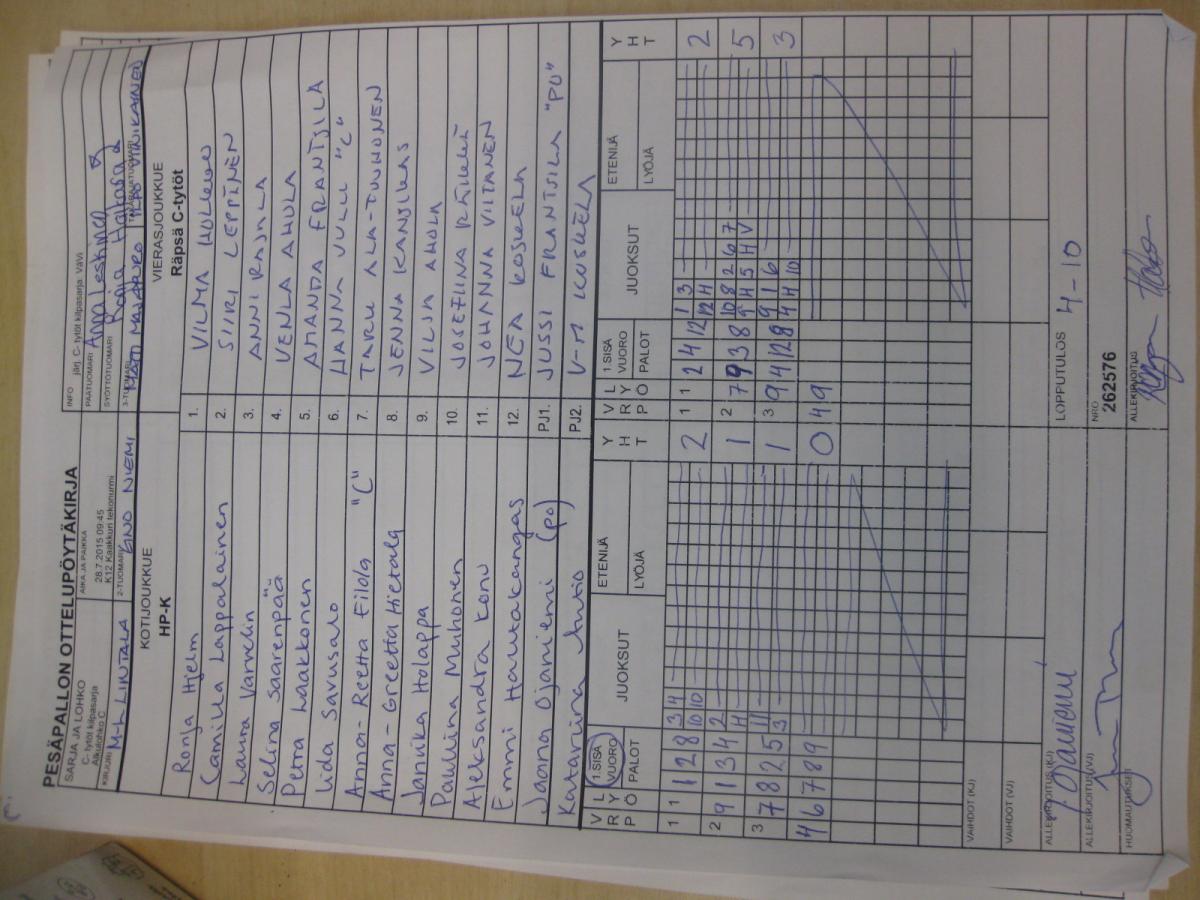 PESÄPALLON OTTELUPÖYTÄKIRJA
SARJA JA LOHKO
C- tytöt kilpasarja
Alkulohko C
AIKA JA PAIKKA
28.7.2015 09:45
K12 Kaakkuri tekonurmi
INFO järj. C- tytöt kilpasarja
PÄÄTUOMARI Anna Leskinen
SYÖTTÖTUOMARI
KIRJURI M-L LINTALA
2-TUOMARI EINO NIEMI
3-TUOMARI
TAKARAJATUOMARI
KOTIJOUKKUE
HP-K
VIERASJOUKKUE
Räpsä C-tytöt
Ronja Hjelm 1. VILMA HOLLEUU
Camilla Lappalainen 2. SIIRI LEPPINEN
Laura Varvelin 3. ANNI RAJALA
Selina Saarenpää 4. VENLA AHOLA
Petra Laakkonen 5. AMANDA FRANTSILA
Iida Savusalo 6. HANNA JULLI "C"
Anna-Reetta Eilola "C" 7. TARU ALA-TUUHONEN
Anna-Greetta Hietala 8. JENNA KANSIKAS
Janika Holappa 9. VILJA AHOLA
Pauliina Muhonen 10. JOSEFIINA
Aleksandra Konu 11. JOHANNA VIITANEN
Emmi Hautakangas 12. NEA KOSKELA
Jaana Ojaniemi (po) PJ1. JUSSI FRANTSILA "PO"
Katariina Autio PJ2. V-M KOSKELA
V R L Y P Ö 1.SISÄ VUORO PALOT JUOKSUT ETENIJÄ LYÖJÄ Y H T
V R L Y P Ö 1.SISÄ VUORO PALOT JUOKSUT ETENIJÄ LYÖJÄ Y H T
1 1 1 2 8 3 4 2 1 1 2 4 12 1 3 2
10 10 12 4
2 9 1 3 4 2 1 2 7 9 3 8 10 8 2 6 7 5
4 9 4 5 H V
3 7 8 2 5 11 1 3 9 4 12 8 9 1 6 3
3 4 4 10
4 6 7 8 9 0 4 9
VAIHDOT (KJ)
VAIHDOT (VJ)
ALLEKIRJOITUS (KJ)
LOPPUTULOS 4-10
ALLEKIRJOITUS (VJ)
NRO
262576
HUOMAUTUKSET
ALLEKIRJOITUS